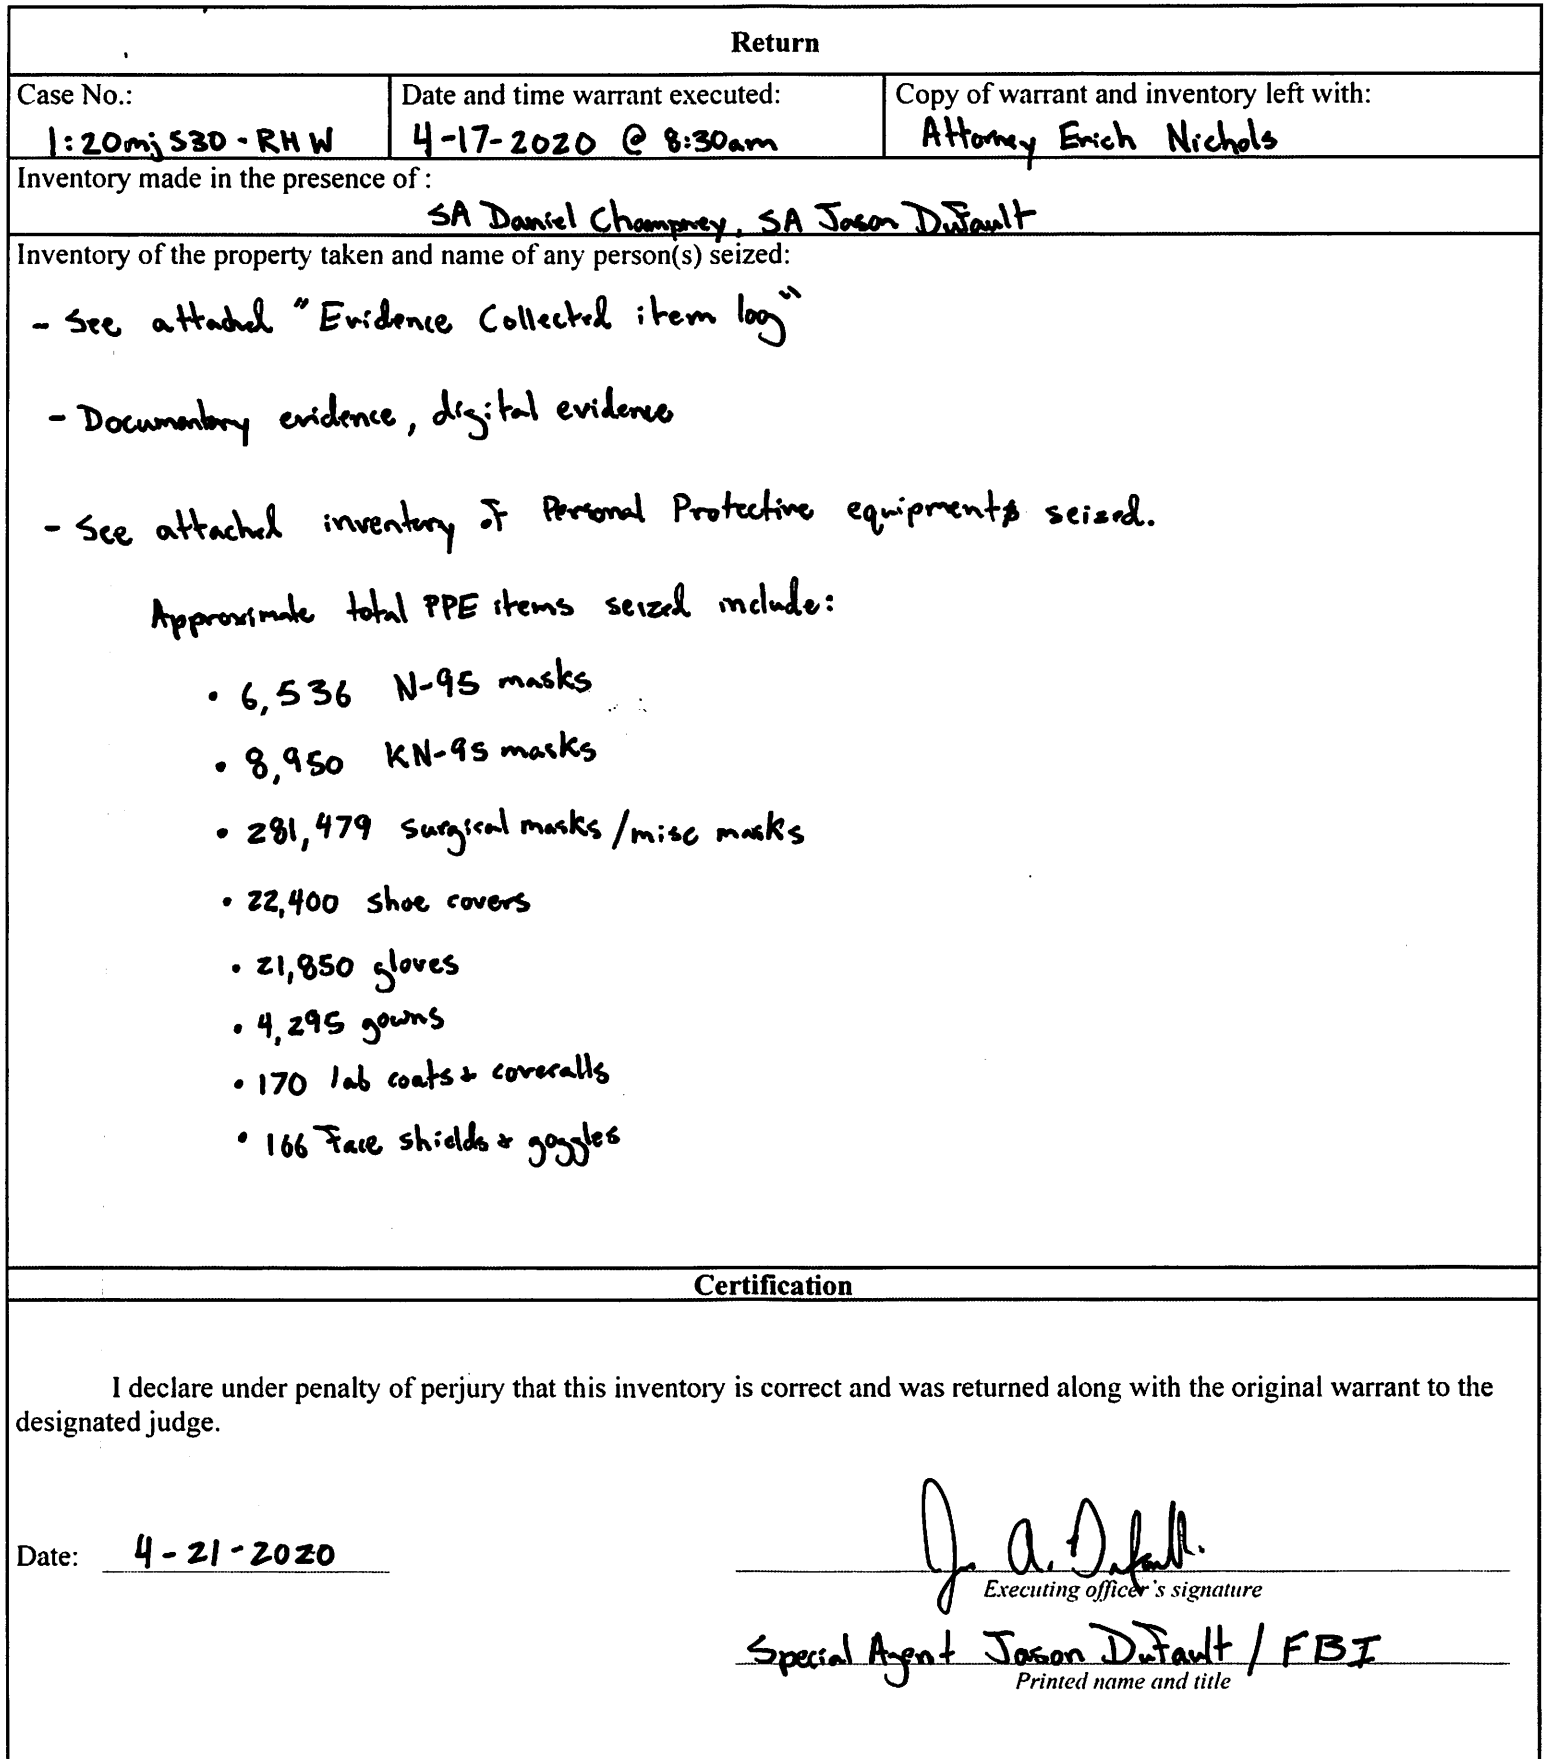 Return
Case No.:
1:20mj530-RHW
Date and time warrant executed:
4-17-2020 @ 8:30am
Copy of warrant and inventory left with:
Attorney Erich Nichols
Inventory made in the presence of :
SA Daniel Champney, SA Jason DuFault
Inventory of the property taken and name of any person(s) seized:
- See attached "Evidence Collected item log"
- Documentary evidence, digital evidence
- See attached inventory of Personal Protective equipment seized.
Approximate total PPE items seized include:
• 6,536 N-95 masks
• 8,950 KN-95 masks
• 281,479 surgical masks/misc masks
• 22,400 shoe covers
• 21,850 gloves
• 4,295 gowns
• 170 lab coats & coveralls
• 166 Face shields & goggles
Certification
I declare under penalty of perjury that this inventory is correct and was returned along with the original warrant to the
designated judge.
Date: 4-21-2020
J A. Dufault
Executing officer's signature
Special Agent Jason DuFault / FBI
Printed name and title